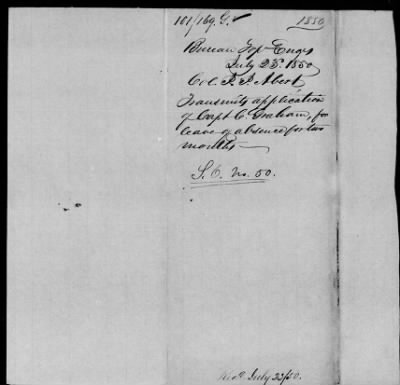 101/169. G. 1850
Bureau Top Engrs
July 23. 1850
Col. J. J. Abert
Transmits application
of Capt C. Graham, for
leave of absence for two
months
S. O. No. 50.
Recd July 23/50.